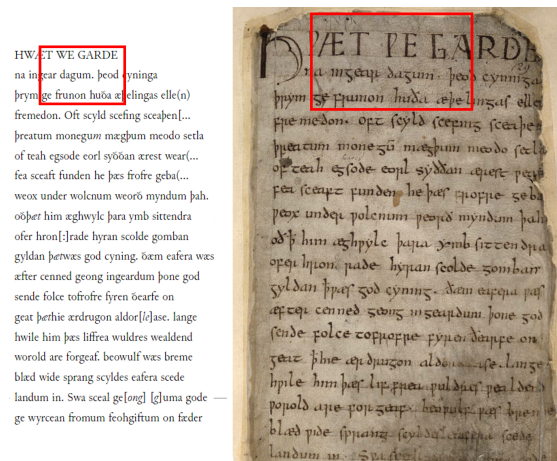 HWÆT WE GARDE
na ingear dagum. þeod cyninga
þrym ge frunon huða æþelingas elle(n)
fremedon. Oft scyld scefing sceaþen[...
þreatum monegum mægþum meodo setla
of teah egsode eorl syððan ærest wear(...
fea sceaft funden he þæs frofre geba(...
weox under wolcnum weorð myndum þah.
oðþet him æghwylc þara ymb sittendra
ofer hron[:]rade hyran scolde gomban
gyldan þætwæs god cyning. ðæm eafera wæs
æfter cenned geong ingeardum þone god
sende folce tofrofre fyren ðearfe on
geat þæthie ærdrugon aldor[le]ase. lange
hwile him þæs liffrea wuldres wealdend
worold are forgeaf. beowulf wæs breme
blæd wide sprang scyldes eafera scede
landum in. Swa sceal ge[ong] [g]uma gode —
ge wyrcean fromum feohgiftum on fæder
HǷÆT ǷE GARDE
na ingear dagum. þeod cyninga
þrym ge frunon huða æþelingas elle
fremedon. oft scyld scefing sceaþe
þreatum monegū mægþum meodo setla
of teah egsode eorl syððan ærest ƿea
fea sceaft funden he þæs frofre geba
ƿeox under ƿolcnum ƿeorð myndum þah
oðꝥ him æghƿylc þara ymb sittendra
ofer hron rade hyran scolde gomban
gyldan ꝥƿæs god cyning. ðæm eafera ƿæs
æfter cenned geong ingeardum þone god
sende folce tofrofre fyren ðearfe on
geat ꝥhie ær drugon aldo ase. lange
hƿile him þæs liffrea ƿuldres ƿealdend
ƿorold are forgeaf. beoƿulf ƿæs breme
blæd ƿide sprang scyldes eafera scede
landum in.